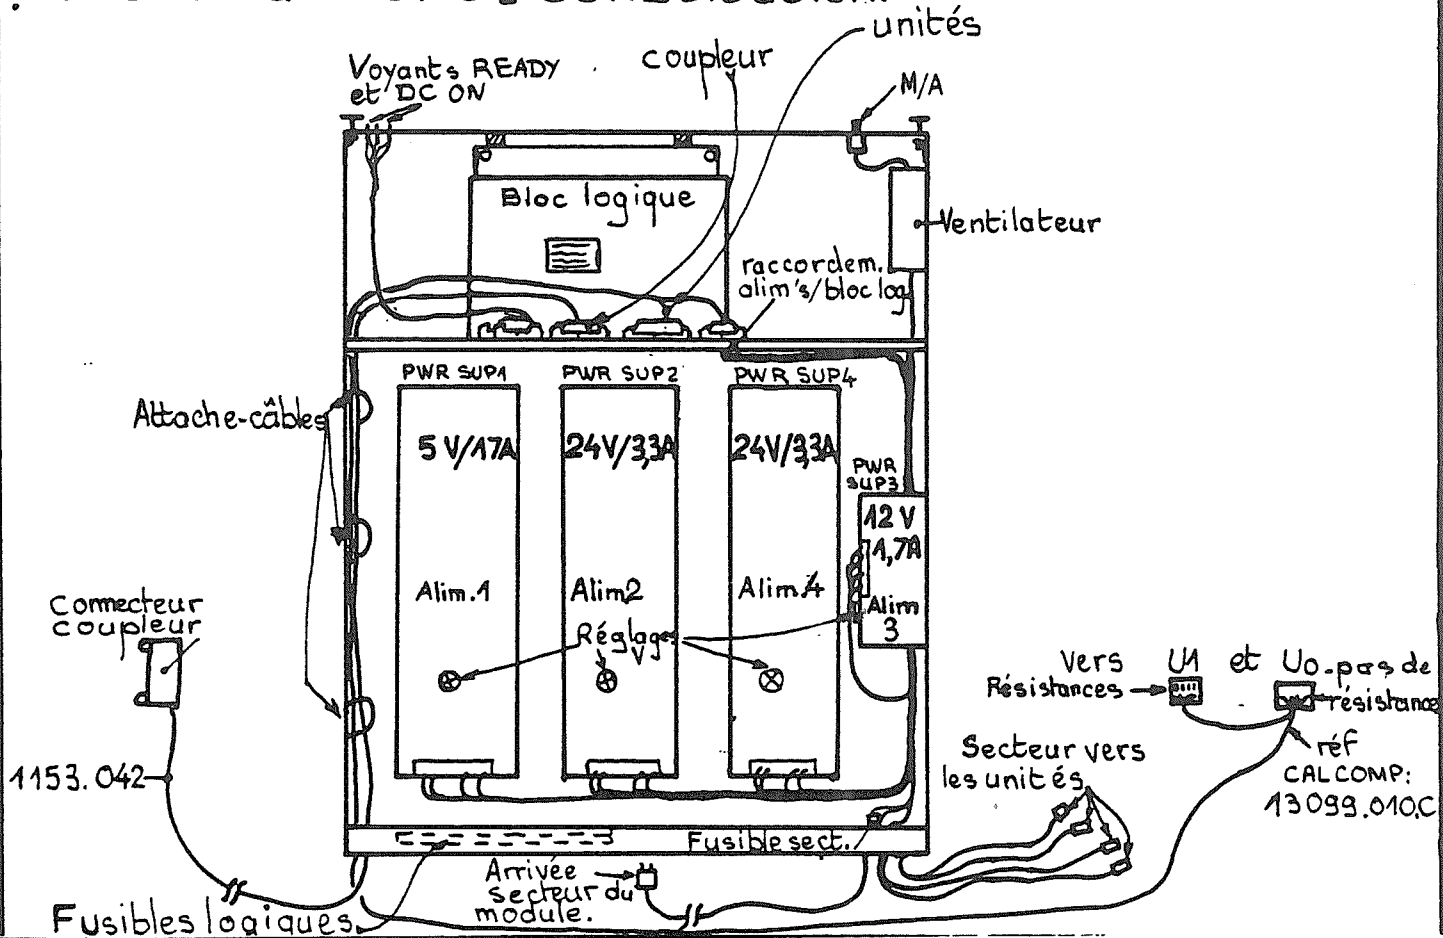 unités
coupleur
Voyants READY
et DC ON
M/A
Bloc logique
Ventilateur
raccordem.
alim's/bloc log
PWR SUP1
PWR SUP2
PWR SUP4
Attache-câbles
5V/17A
24V/3,3A
24V/3,3A
PWR
SUP3
12V
1,7A
Alim.1
Alim2
Alim.4
Alim
3
Réglages
V
Connecteur
coupleur
1153.042
vers
Résistances
U1 et U0.pas de
résistance
réf
CALCOMP:
13099.010.C
Secteur vers
les unités
Fusible sect.
Arrivée
secteur du
module.
Fusibles logiques